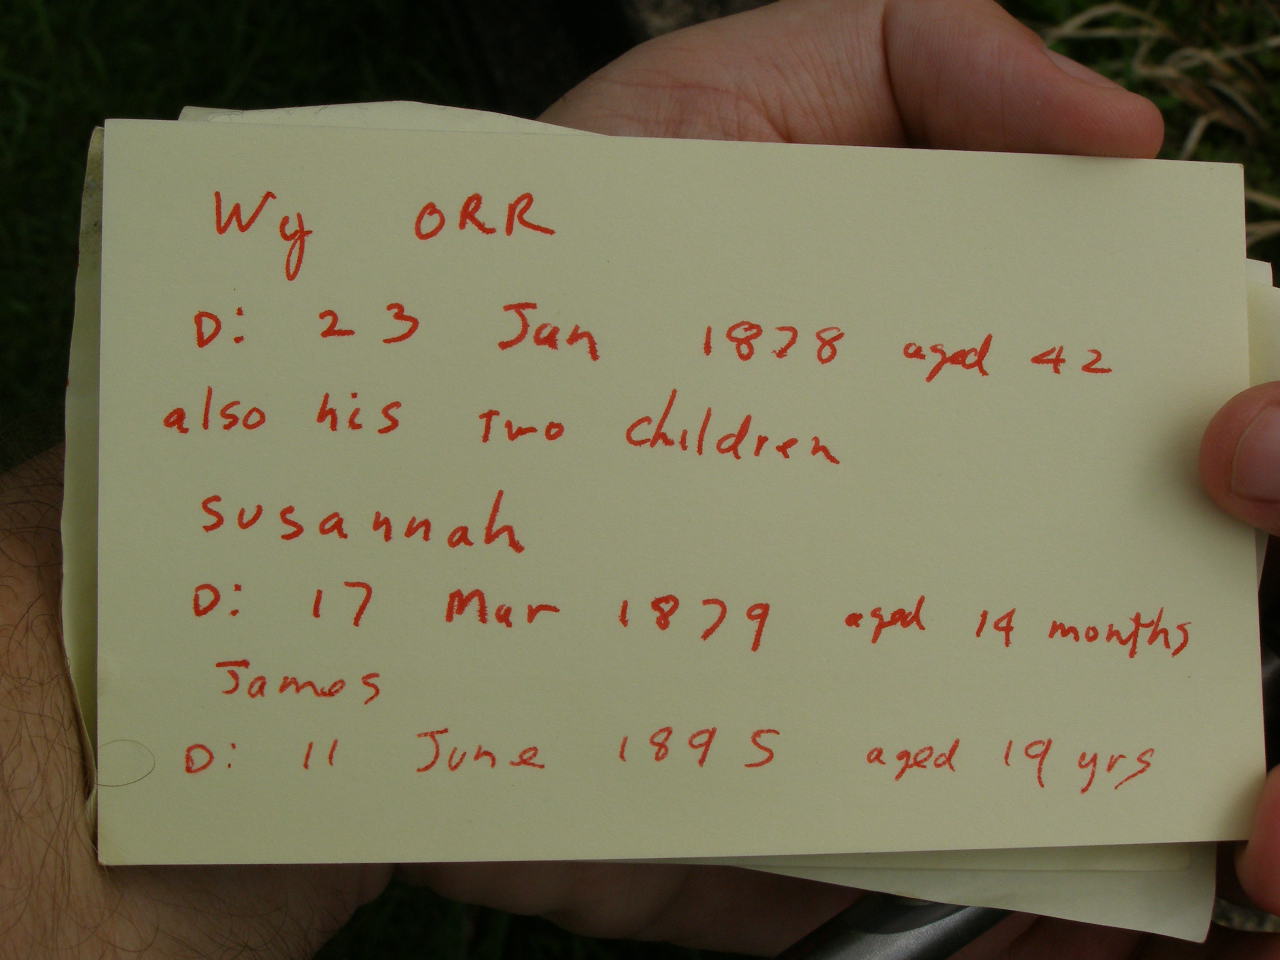 Wy ORR
D: 23 Jan 1878 aged 42
also his two children
Susannah
D: 17 Mar 1879 aged 14 months
James
D: 11 June 1895 aged 19 yrs